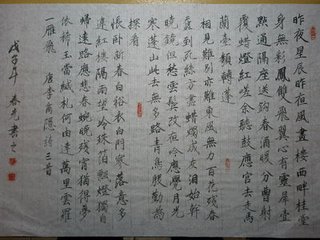 昨夜星辰昨夜風畫樓西畔桂堂東
身無彩鳳雙飛翼心有靈犀壹
點通隔座送鉤春酒暖分曹射
覆蠟燈紅嗟余聽鼓應官去走馬
蘭臺類轉蓬
相見時難別亦難東風無力百花殘春
蠶到死絲方盡蠟炬成灰淚始幹
曉鏡但愁雲鬢改夜吟應覺月光
寒蓬山此去無多路青鳥殷勤為
探看
悵臥新春白袷衣白門寥落意多
違紅樓隔雨相望冷珠箔飄燈獨自
歸遠路應悲春晼晚殘宵猶得夢
依稀玉璫緘札何由達萬里雲羅
一雁飛 唐李商隱詩三首
戊子年春光書之